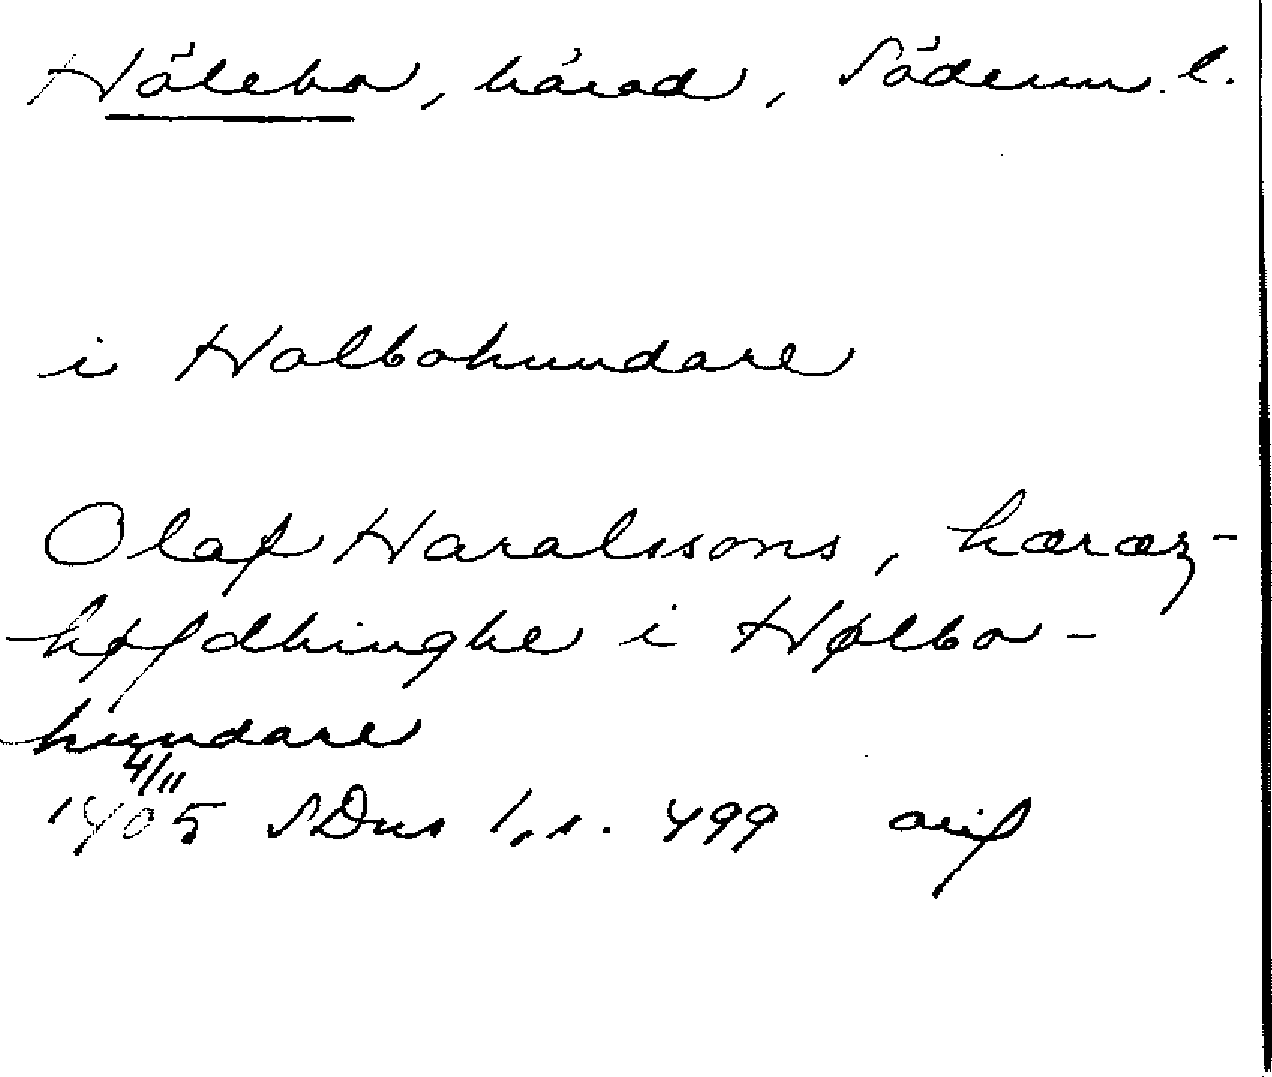 Hölebo, härad, Söderm. l.
i Holbohundare
Olaf Haralssons, hæræz-
høfdhinghe i Hølbo-
hundare
4/11
1405 SDns 1, s. 499 avs